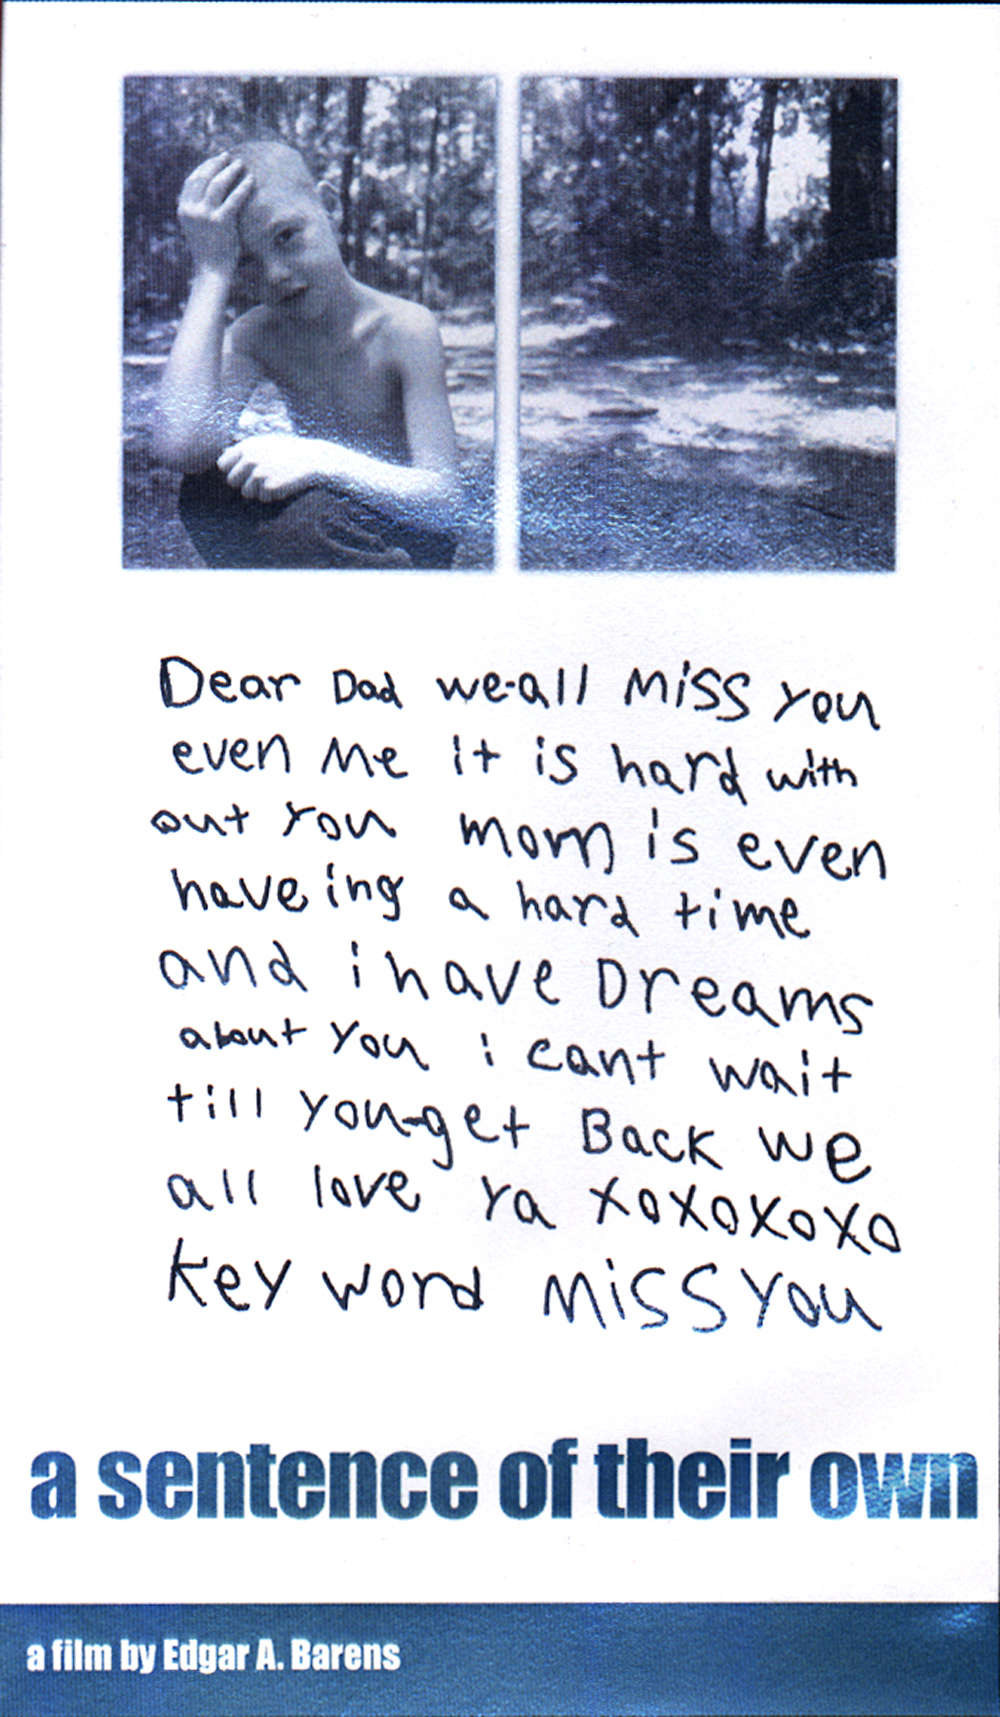 Dear Dad we-all miss you
even me it is hard with
out you mom is even
haveing a hard time
and i have Dreams
about you i cant wait
till you-get Back we
all love ya xoxoxoxo
key word miss you
a sentence of their own
a film by Edgar A. Barens